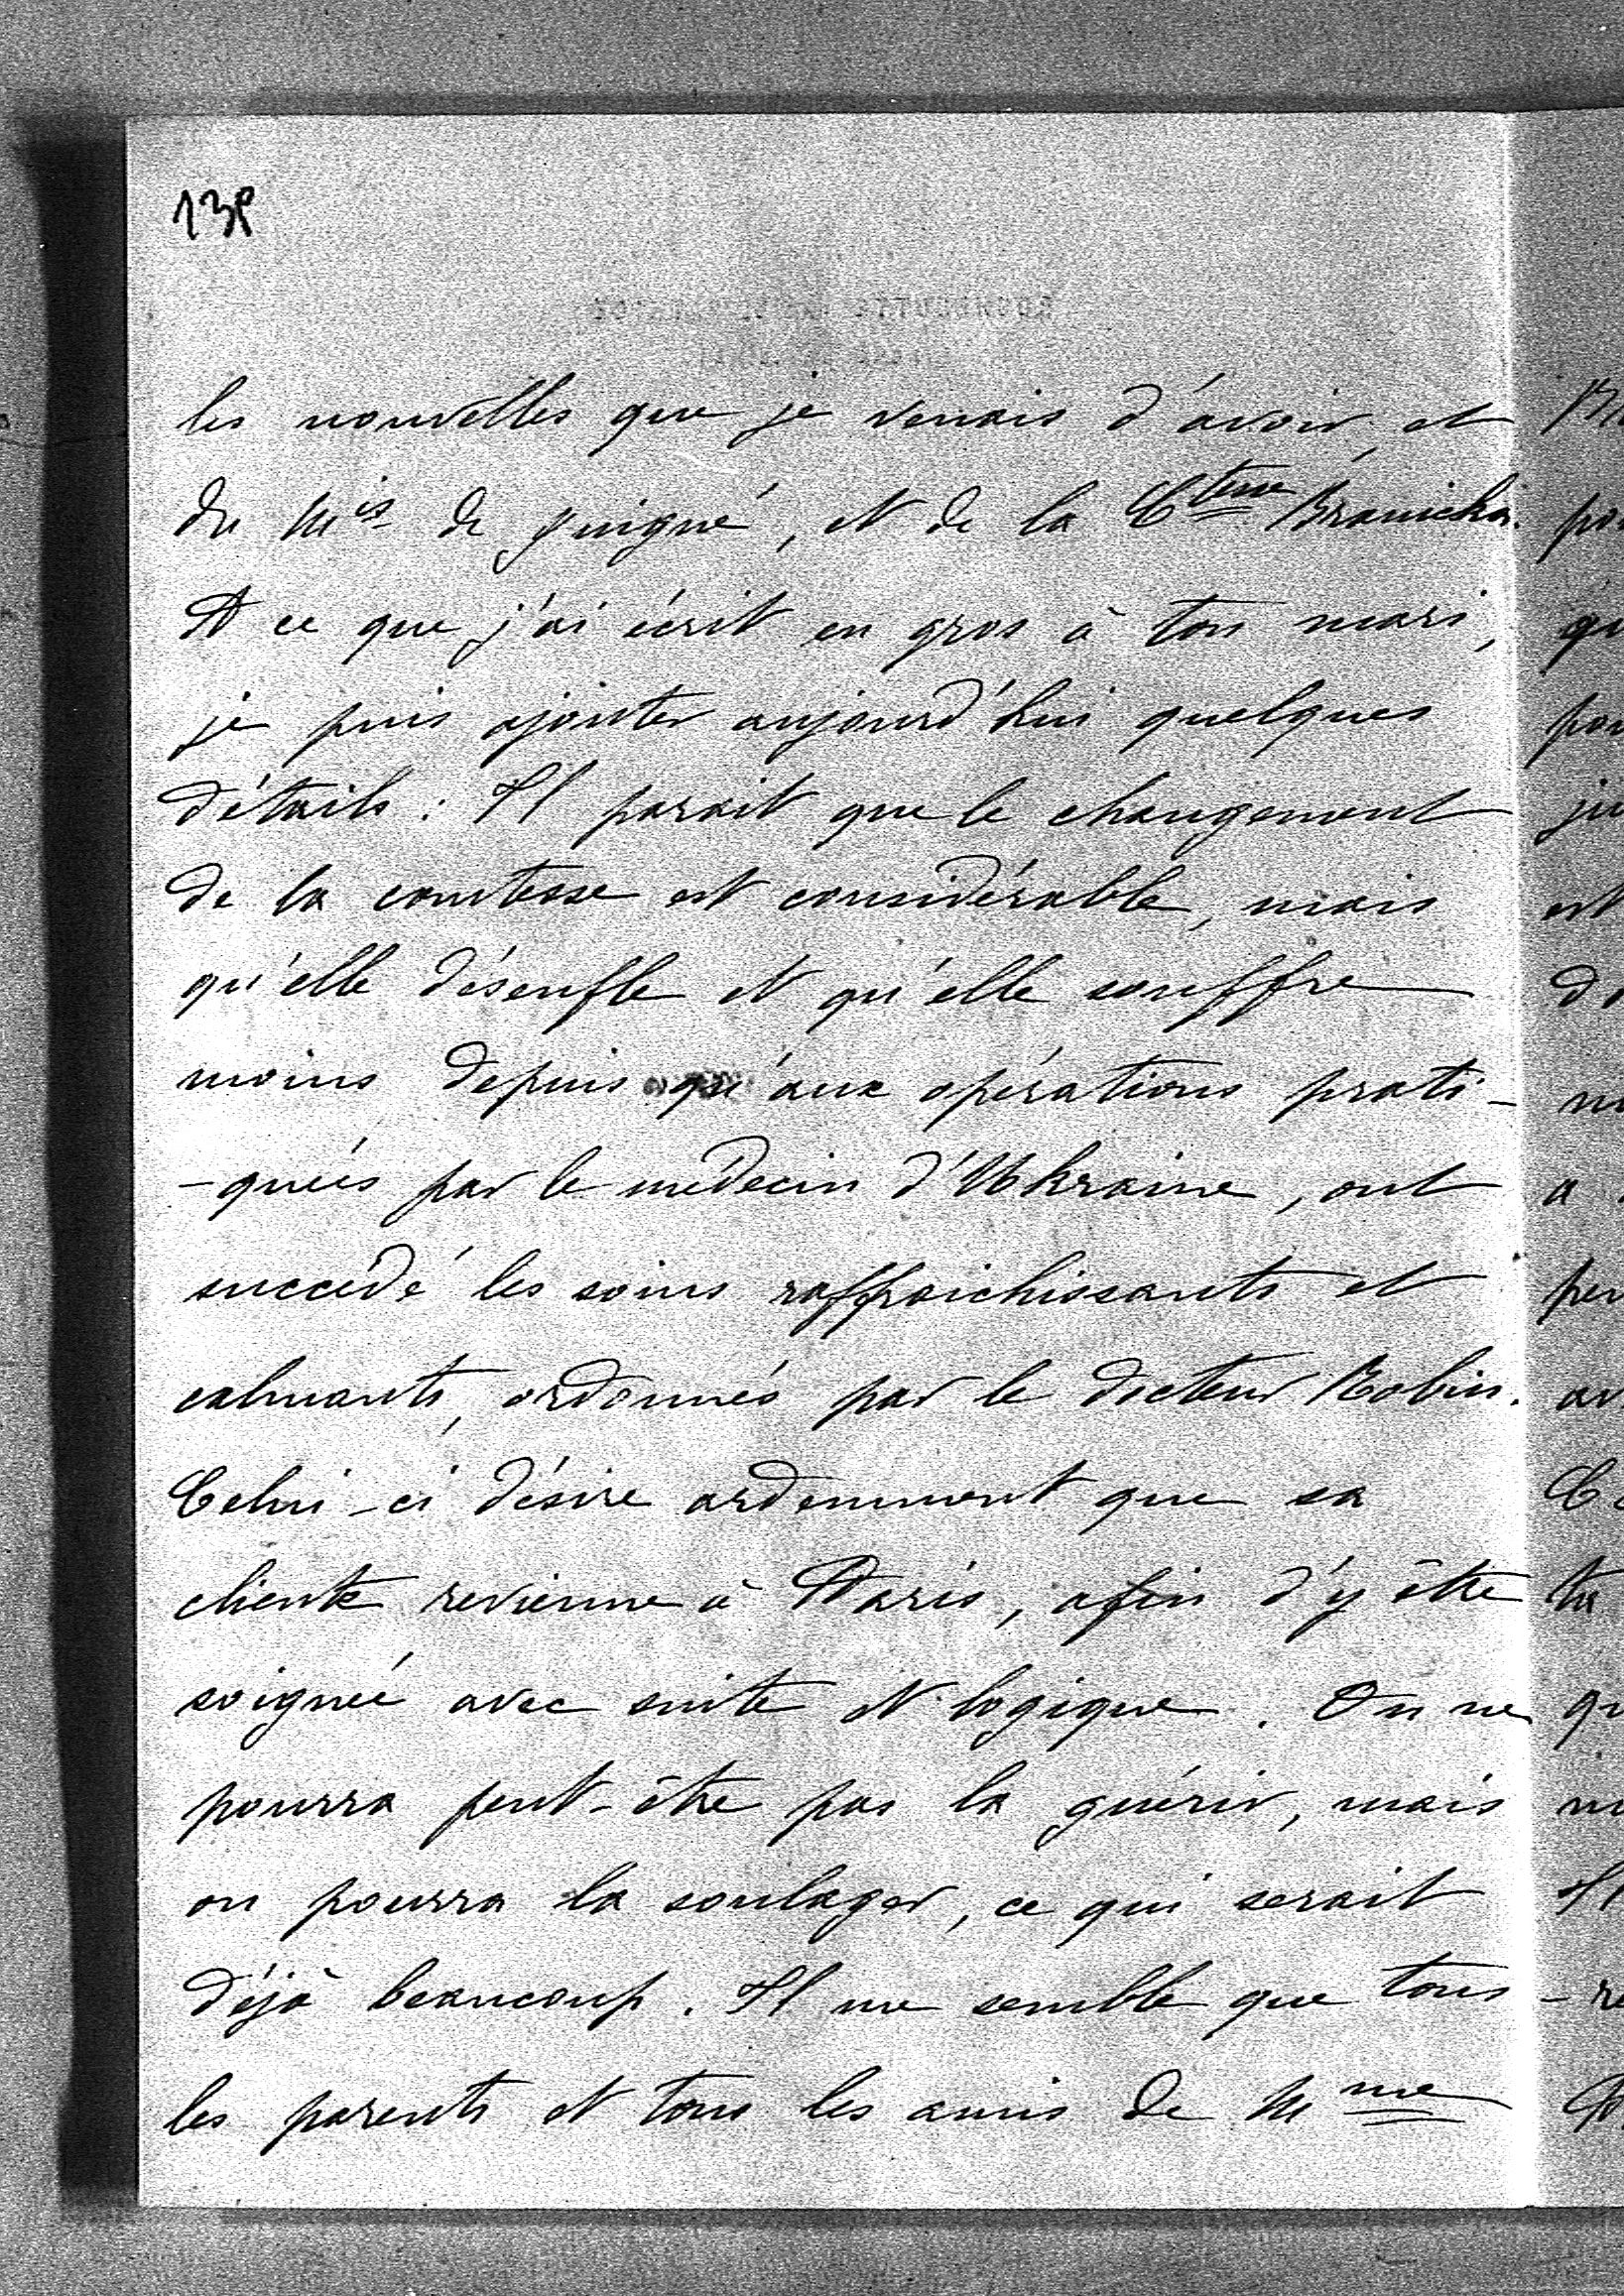 138
les nouvelles que je venais d'avoir, et
du Mis de Juigné, et de la Ctesse Branicka.
A ce que j'ai écrit en gros à ton mari,
je puis ajouter aujourd'hui quelques
détails : Il parait que le changement
de la comtesse est considérable, mais
qu'elle désenfle et qu'elle souffre
moins depuis qu'aux opérations prati-
-quées par le médecin d'Ukraine, ont
succédé les soins raffraichissants et
calmants, ordonnés par le docteur Robin.
Celui-ci désire ardemment que sa
cliente revienne à Paris, afin d'y être
soignée avec suite et logique. On ne
pourra peut-être pas la guérir, mais
on pourra la soulager, ce qui serait
déjà beaucoup. Il me semble que tous
les parents et tous les amis de Mme